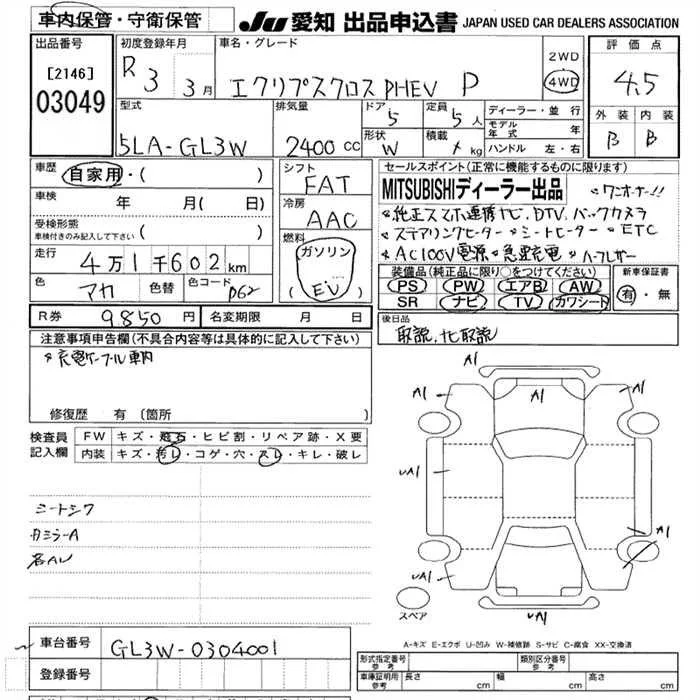 車内保管・守衛保管
JU 愛知 出品申込書 JAPAN USED CAR DEALERS ASSOCIATION
出品番号
[2146]
03049
初度登録年月
R 3 3月
車名・グレード
エクリプスクロスPHEV P
2WD
4WD
評価点
4.5
外装 内装
B B
型式
5LA-GL3W
排気量
2400 cc
ドア 5
定員 5人
形状 W
積載 kg
ディーラー・並行
モデル年式 年
ハンドル 左・右
車歴 自家用・( )
車検 年 月( 日)
受検形態
車検付きのみ記入して下さい ( )
走行 4万1千602km
色 アカ 色替 色コード P62
シフト
FAT
冷房
AAC
燃料
ガソリン
(EV)
セールスポイント(正常に機能するものに限ります)
MITSUBISHIディーラー出品 *ワンオーナー!!
*純正スマホ連携ナビ、DTV、バックカメラ
*ステアリングヒーター *シートヒーター *ETC
*AC100V電源 *急速充電 *ハーフレザー
装備品(純正品に限り○をつけてください)
PS PW エアB AW
SR ナビ TV カワシート
新車保証書
有・無
R券 9850円 名変期限 月 日
後日品
取説、ナビ取説
注意事項申告欄(不具合内容等は具体的に記入して下さい)
*充電ケーブル車内
修復歴 有 〔箇所 〕
検査員記入欄
FW キズ・飛石・ヒビ割・リペア跡・X要
内装 キズ・汚レ・コゲ・穴・スレ・キレ・破レ
シートシワ
A1
A1
A1
A1
UA1
UA1
A1
UA1
UA1
スペア
A-キズ E-エクボ U-凹み W-補修跡 S-サビ C-腐食 XX-交換済
車台番号 GL3W-0304001
登録番号
形式指定番号 参考
類別区分番号 参考
車庫証明用 参考 長さ cm 幅 cm 高さ cm